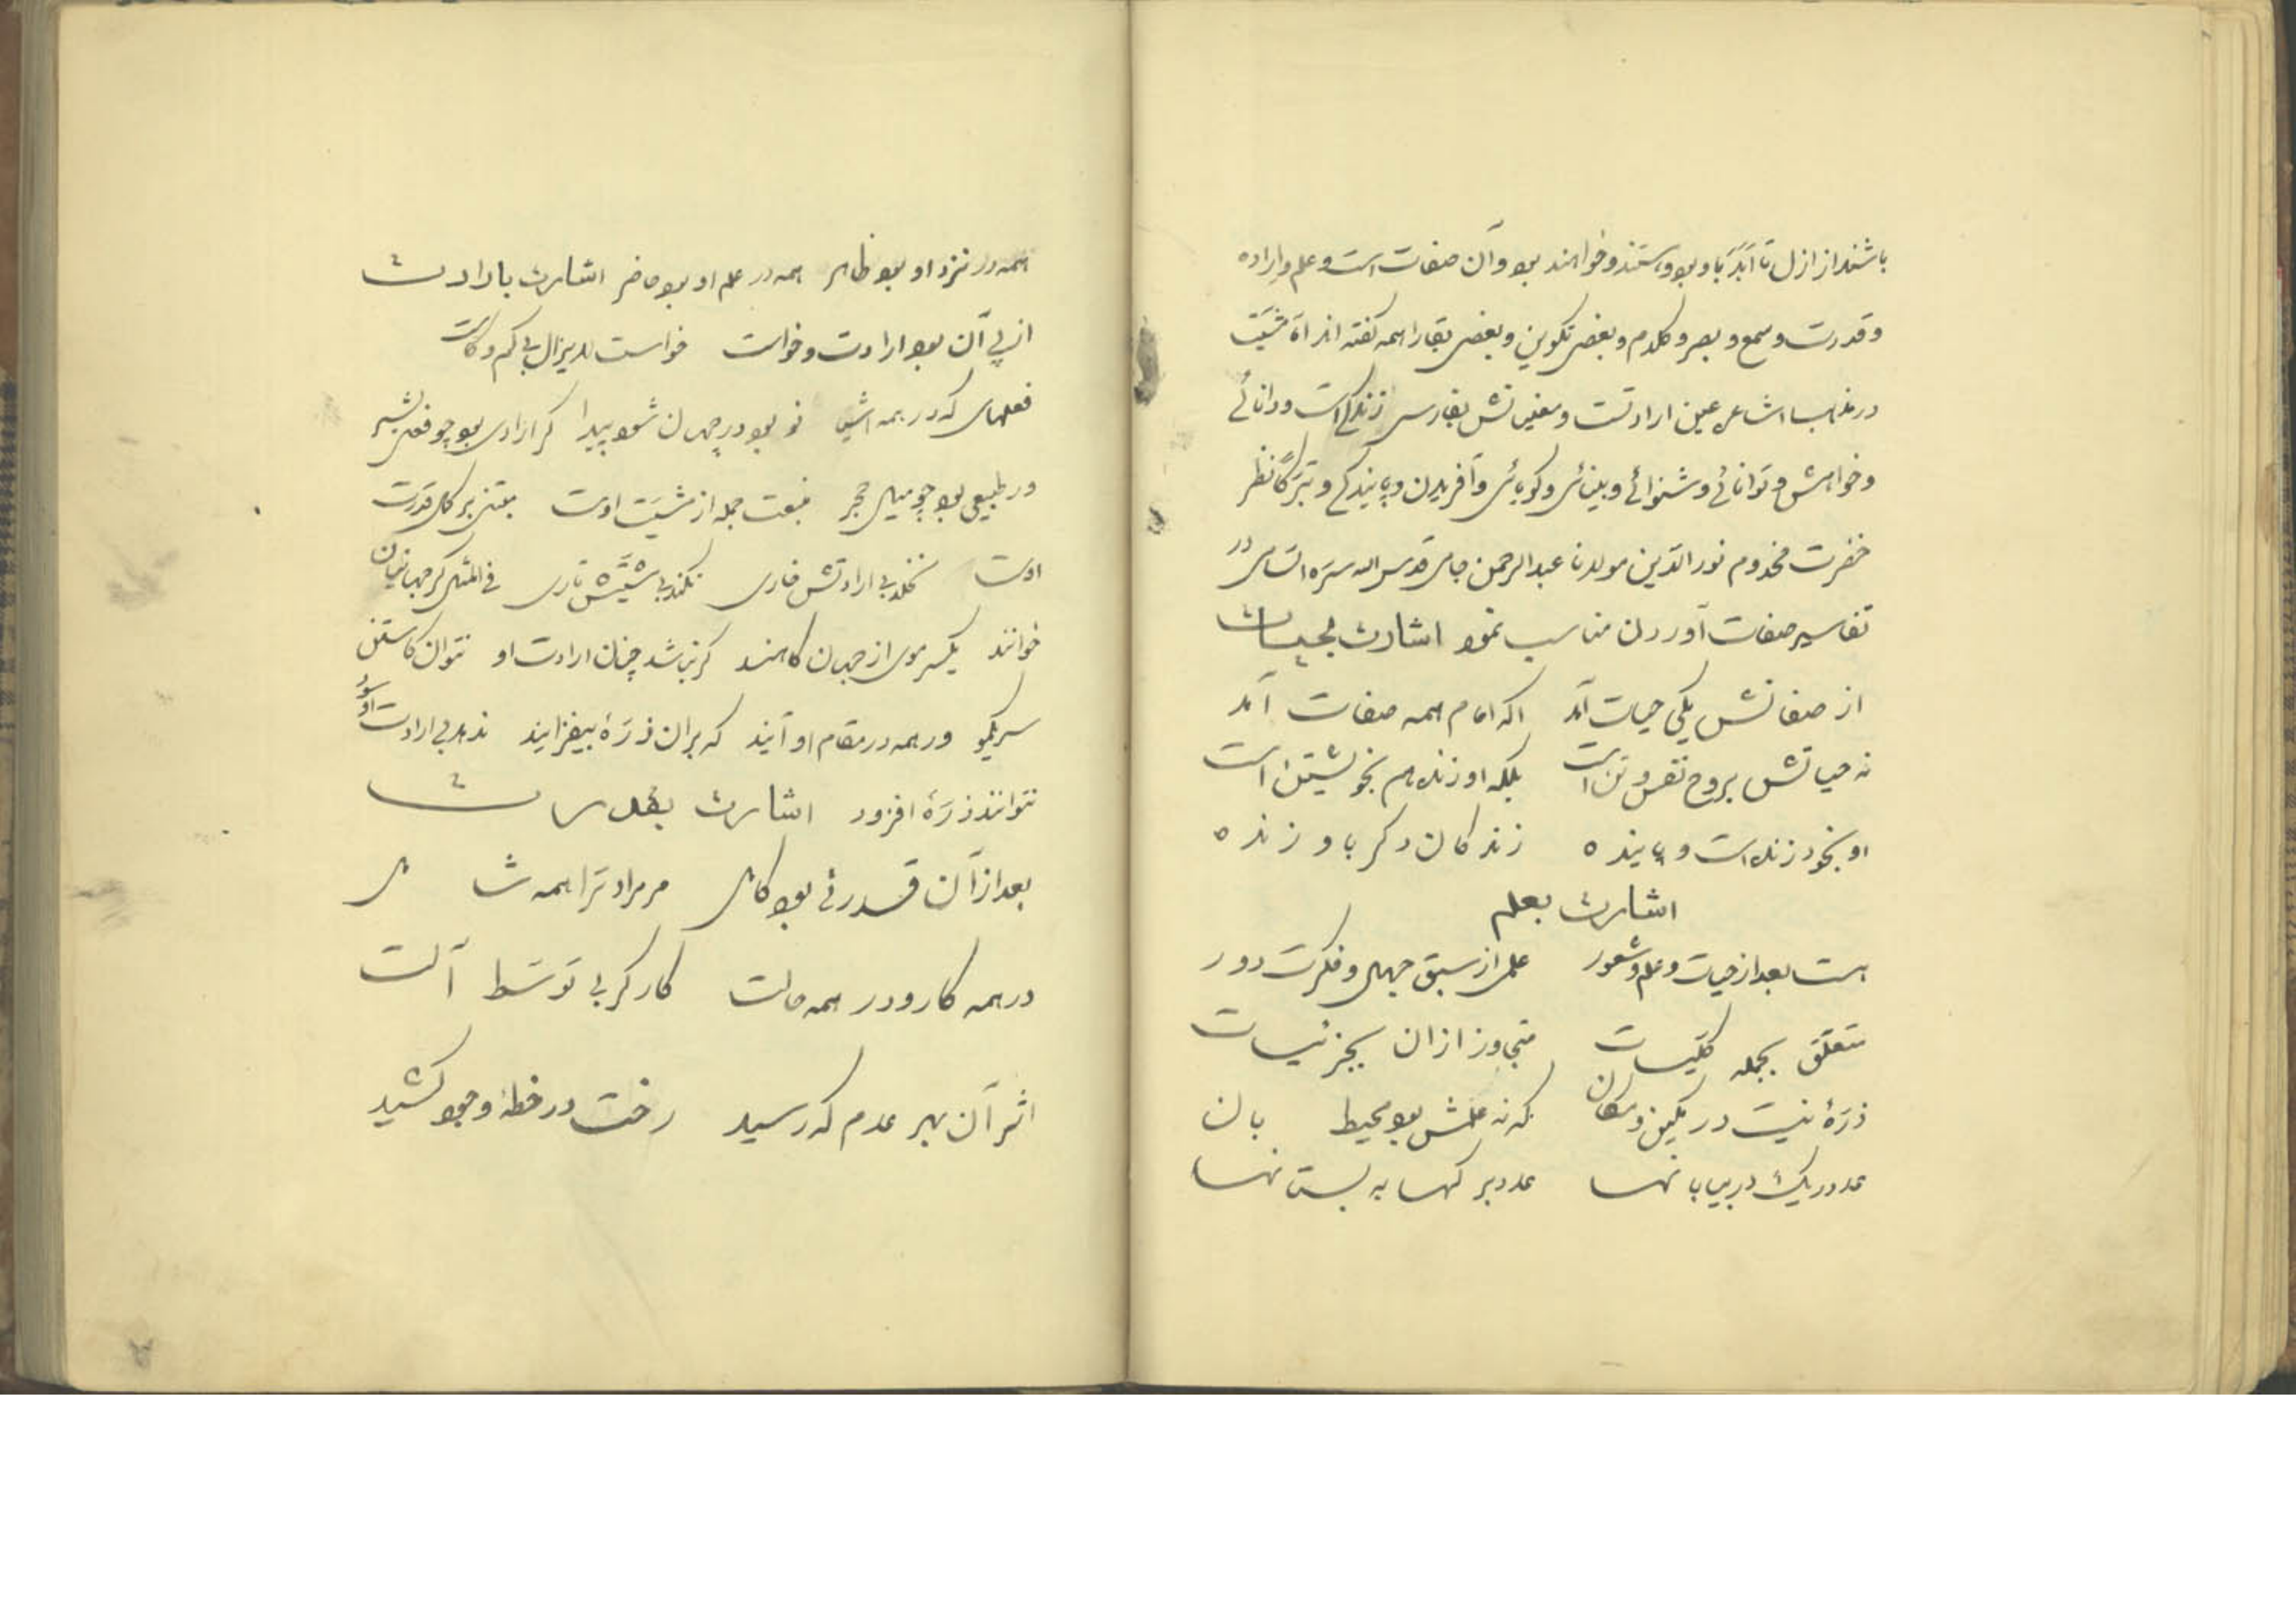 باشند از ازل تا ابد با او بود و هستند و خواهند بود و آن صفات است و علم و اراده
و قدرت و سمع و بصر و کلام و بعضی تکوین و بعضی بقا را همه گفته اند اما مشیّت
در مذهب اشاعره عین ارادتست و معنیاتش بفارسی زندگی است و دانائی
و خواهش و توانائی و شنوائی و بینائی و گویائی و آفریدن و پایندگی و تبرّکاً نظر
حضرت مخدوم نور الدّین مولانا عبد الرحمن جامی قدس الله سرّه السّامی در
تفاسیر صفات آوردن مناسب نمود اشارت بحیات
از صفاتش یکی حیات آمد که امام همه صفات آمد
نه حیاتش بروح و نفس و تن است بلکه او زنده هم بخویشتن است
او بخود زنده است و پاینده زندگان دگر باو زنده
اشارت بعلم
هست بعد از حیات و علم و شعور علمی از سبق جهل و فکرت دور
متعلّق بجمله کلّیات متجاوز ازان بجزئیات
ذرّهٔ نیست در مکین و مکان که نه علمش بود محیط بان
عدد ریک در بیابانها عدد برکها به بستانها
همه در نزد او بود ظاهر همه در علم او بود حاضر اشارت بارادت
از پی آن بود ارادت و خواست خواست لایزال بی کم و کاست
فعلهای که در همه اشیا نو بود در جهان شود پیدا گر ارادی بود چو فعل بشر
ور طبیعی بود چو میل حجر منبعث جمله از مشیّت اوست مبتنی بر کمال قدرت
اوست نخلد بی ارادتش خاری نگسلد بی مشیّتش تاری فی المثل گر جهانیان
خواهند یکسر موی از جهان کاهند گر نباشد چنان ارادت او نتوان کاستن
سر یکمو ور همه در مقام او آیند که بران ذرّهٔ بیفزایند ندهد بی ارادت او سود
نتوانند ذرّهٔ افزود اشارت بقدرت
بعد از آن قدرتی بود کامل مر مرادترا همه شامل
در همه کار و در همه حالت کارگر بی توسّط آلت
اثر آن بهر عدم که رسید رخت در خطّهٔ وجود کشید